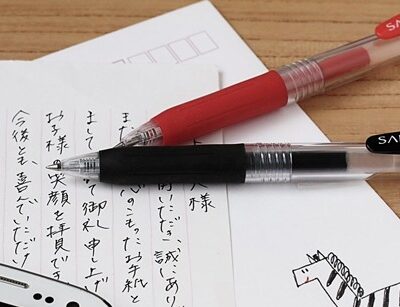 人様
いただき、誠にあり
また、心のこもったお手紙と
まして、 て御礼申し上げ
お子様の笑顔を拝見でき
今後とも、喜んでいただけ
SA
SA